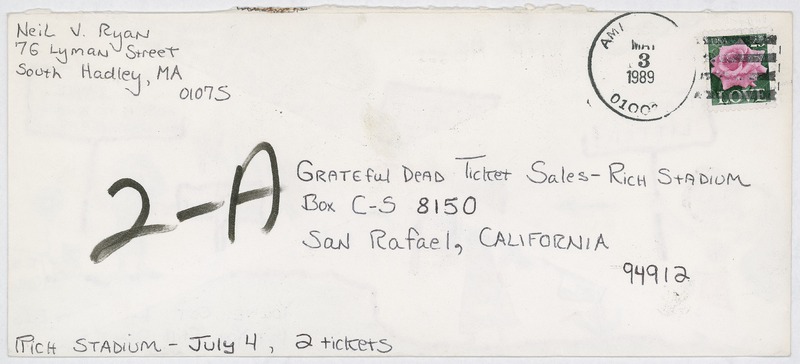 Neil V. Ryan
76 Lyman Street
South Hadley, MA
01075
MAY
3
1989
LOVE
2-A
Grateful Dead Ticket Sales - Rich Stadium
Box C-S 8150
San Rafael, California
94912
Rich Stadium - July 4, 2 tickets